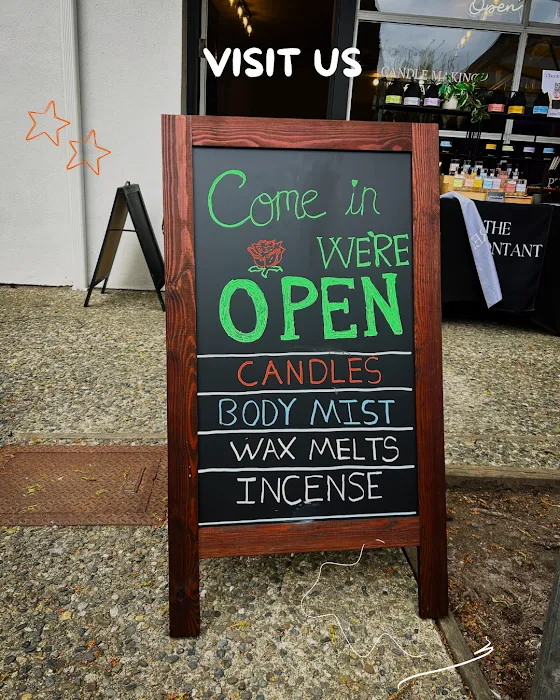 VISIT US
Open
CANDLE MAKING
Come in
WE'RE
OPEN
CANDLES
BODY MIST
WAX MELTS
INCENSE
THE